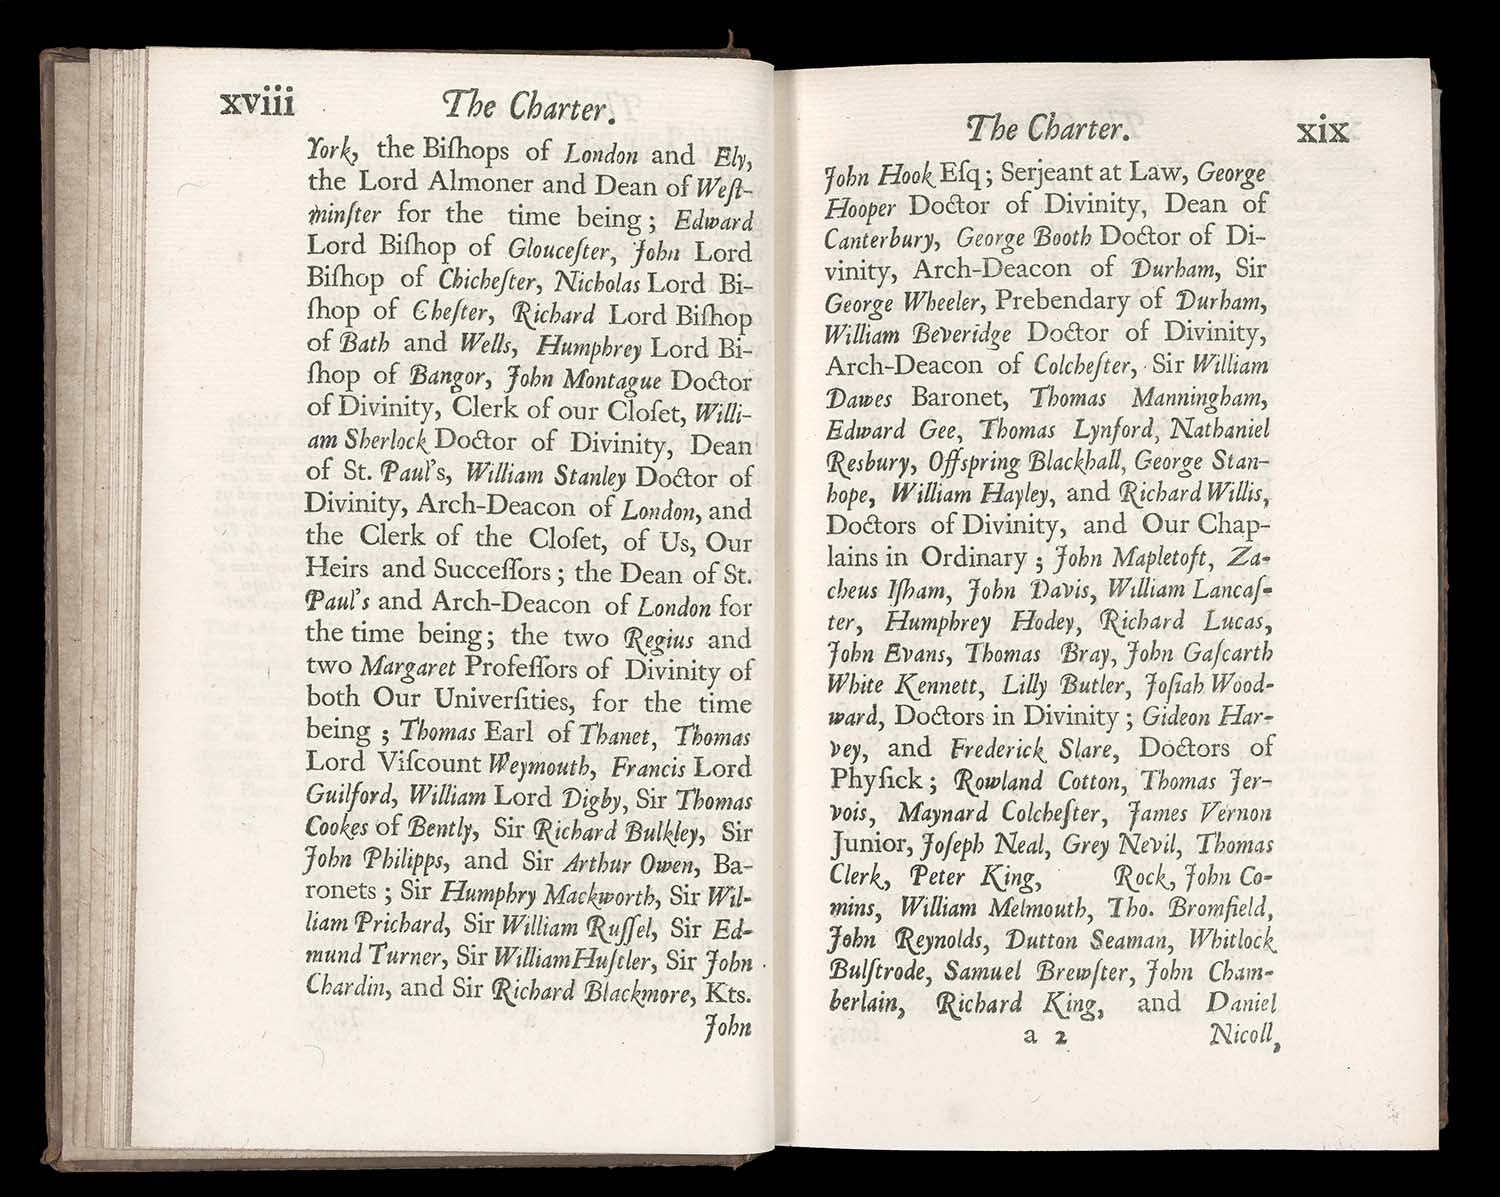 xviii The Charter.
York, the Biſhops of London and Ely,
the Lord Almoner and Dean of Weſt-
minſter for the time being; Edward
Lord Biſhop of Glouceſter, John Lord
Biſhop of Chicheſter, Nicholas Lord Bi-
ſhop of Cheſter, Richard Lord Biſhop
of Bath and Wells, Humphrey Lord Bi-
ſhop of Bangor, John Montague Doctor
of Divinity, Clerk of our Cloſet, Willi-
am Sherlock Doctor of Divinity, Dean
of St. Paul's, William Stanley Doctor of
Divinity, Arch-Deacon of London, and
the Clerk of the Cloſet, of Us, Our
Heirs and Succeſſors; the Dean of St.
Paul's and Arch-Deacon of London for
the time being; the two Regius and
two Margaret Profeſſors of Divinity of
both Our Univerſities, for the time
being; Thomas Earl of Thanet, Thomas
Lord Viſcount Weymouth, Francis Lord
Guilford, William Lord Digby, Sir Thomas
Cookes of Bently, Sir Richard Bulkley, Sir
John Philipps, and Sir Arthur Owen, Ba-
ronets; Sir Humphry Mackworth, Sir Wil-
liam Prichard, Sir William Ruſſel, Sir Ed-
mund Turner, Sir William Huſtler, Sir John
Chardin, and Sir Richard Blackmore, Kts.
John
The Charter. xix
John Hook Eſq; Serjeant at Law, George
Hooper Doctor of Divinity, Dean of
Canterbury, George Booth Doctor of Di-
vinity, Arch-Deacon of Durham, Sir
George Wheeler, Prebendary of Durham,
William Beveridge Doctor of Divinity,
Arch-Deacon of Colcheſter, Sir William
Dawes Baronet, Thomas Manningham,
Edward Gee, Thomas Lynford, Nathaniel
Resbury, Offspring Blackhall, George Stan-
hope, William Hayley, and Richard Willis,
Doctors of Divinity, and Our Chap-
lains in Ordinary; John Mapletoft, Za-
cheus Iſham, John Davis, William Lancaſ-
ter, Humphrey Hodey, Richard Lucas,
John Evans, Thomas Bray, John Gaſcarth
White Kennett, Lilly Butler, Joſiah Wood-
ward, Doctors in Divinity; Gideon Har-
vey, and Frederick Slare, Doctors of
Phyſick; Rowland Cotton, Thomas Jer-
vois, Maynard Colcheſter, James Vernon
Junior, Joſeph Neal, Grey Nevil, Thomas
Clerk, Peter King, Rock, John Co-
mins, William Melmouth, Tho. Bromfield,
John Reynolds, Dutton Seaman, Whitlock
Bulſtrode, Samuel Brewſter, John Cham-
berlain, Richard King, and Daniel
a 2 Nicoll,